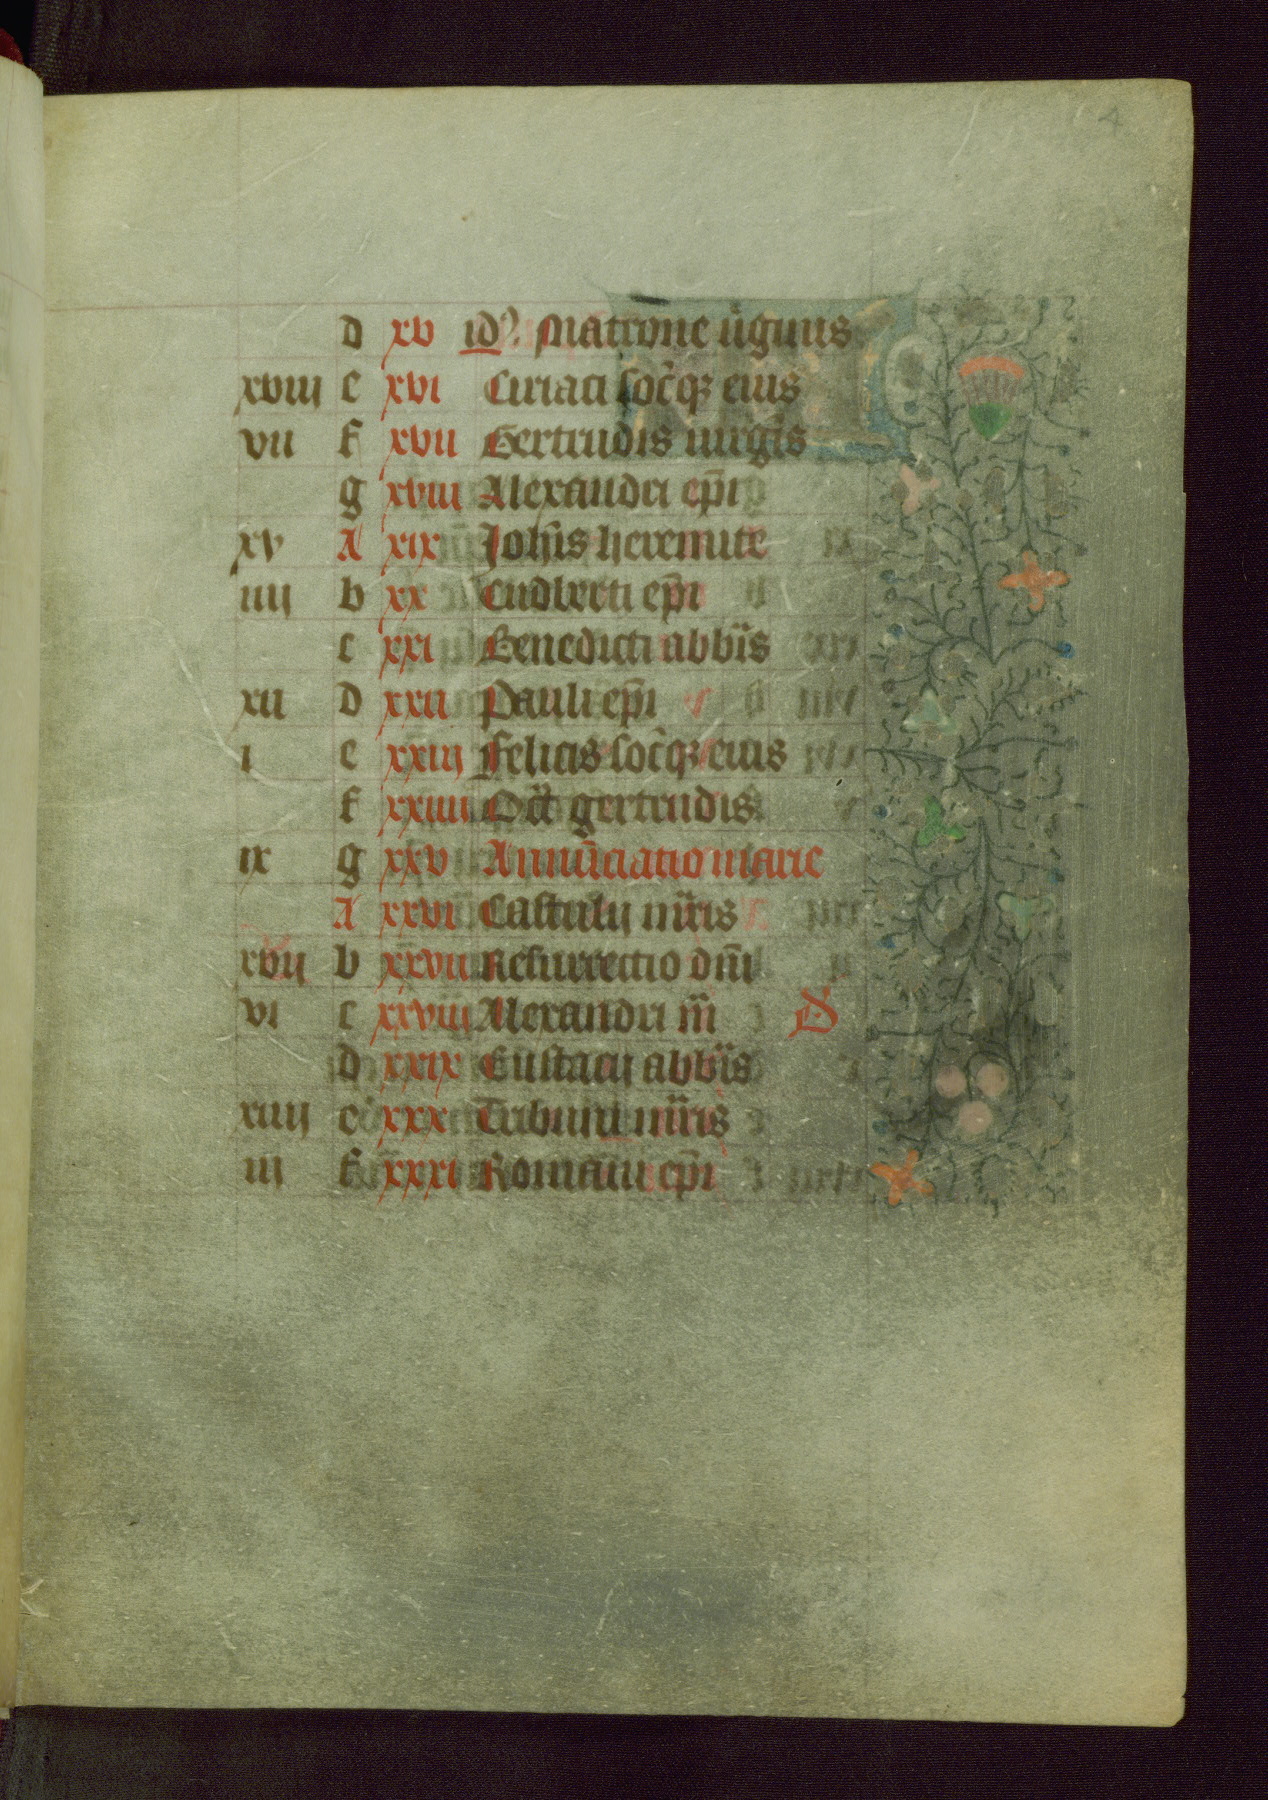 4
d xv id᷒. Matrone ūginis
xviij e xvi Ciriaci soc̄qꝫ eius
vii f xvii Gertrudis uirgīs
g xviii Alexandri ep̄i
xv A xix Joh̄is heremite
iiij b xx Cudberti ep̄i
c xxi Benedicti abb̄is
xii d xxii Pauli ep̄i
i e xxiij Felicis soc̄qꝫ eius
f xxiiij Oct̄ gertrudis
ix g xxv Annūciatio marie
A xxvi Castulij m̄ris
xvij b xxvii Resurrectio dn̄i
vi c xxviij Alexandri m̄
d xxix Eustacij abb̄is
xiiij e xxx Tribuni m̄ris
iij f xxxi Romani ep̄i